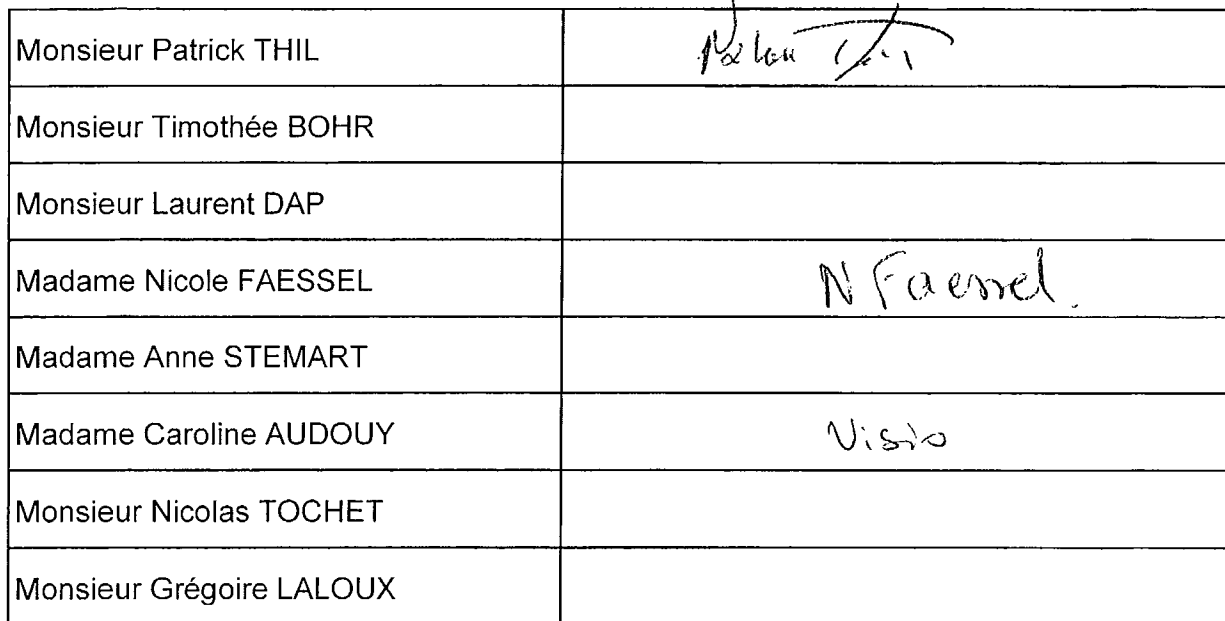 Monsieur Patrick THIL
Monsieur Timothée BOHR
Monsieur Laurent DAP
Madame Nicole FAESSEL N Faessel.
Madame Anne STEMART
Madame Caroline AUDOUY Visio
Monsieur Nicolas TOCHET
Monsieur Grégoire LALOUX